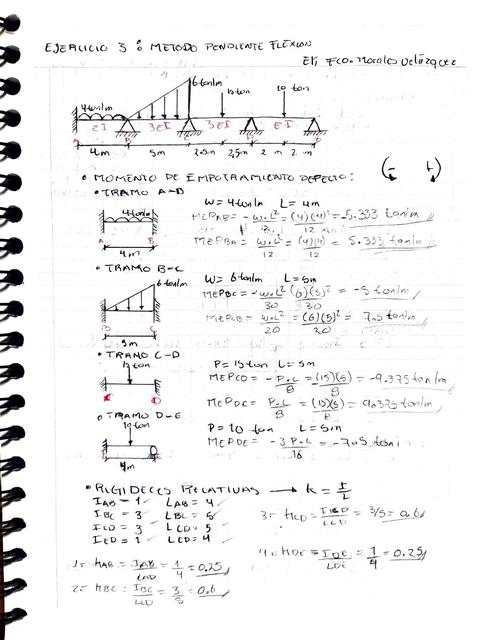 EJERCICIO 3: METODO PENDIENTE FLEXION
6 ton/m
4 ton/m
15 ton
10 ton
EI 3EI 3EI EI
4m 5m 2.5m 2.5m 2 m 2 m
• MOMENTO DE EMPOTRAMIENTO PERFECTO: (- +)
• TRAMO A-B
4 ton/m
A B
4m
W = 4 ton/m L = 4m
MEPAB = -w·L²/12 = (4)(4)²/12 = -5.333 ton/m
MEPBA = w·L²/12 = (4)(4)²/12 = 5.333 ton/m
• TRAMO B-C
6 ton/m
B C
5m
W = 6 ton/m L = 5m
MEPBC = -w·L²/30 = (6)(5)²/30 = -5 ton/m
MEPCB = w·L²/20 = (6)(5)²/20 = 7.5 ton/m
• TRAMO C-D
15 ton
P = 15 ton L = 5m
MEPCD = -P·L/8 = (15)(5)/8 = -9.375 ton/m
MEPDC = P·L/8 = (15)(5)/8 = 9.375 ton/m
• TRAMO D-E
10 ton
4m
P = 10 ton L = 5m
MEPDE = -3P·L/16 = -7.5 ton/
• RIGIDECES RELATIVAS → K = I/L
IAB = 1 LAB = 4
IBC = 3 LBC = 5
ICD = 3 LCD = 5
IED = 1 LED = 4
3= KCD = ICD/LCD = 3/5 = 0.6
4= KDE = IDE/LDE = 1/4 = 0.25
1= KAB = IAB/LAB = 1/4 = 0.25
2= KBC = IBC/LCD = 3/5 = 0.6